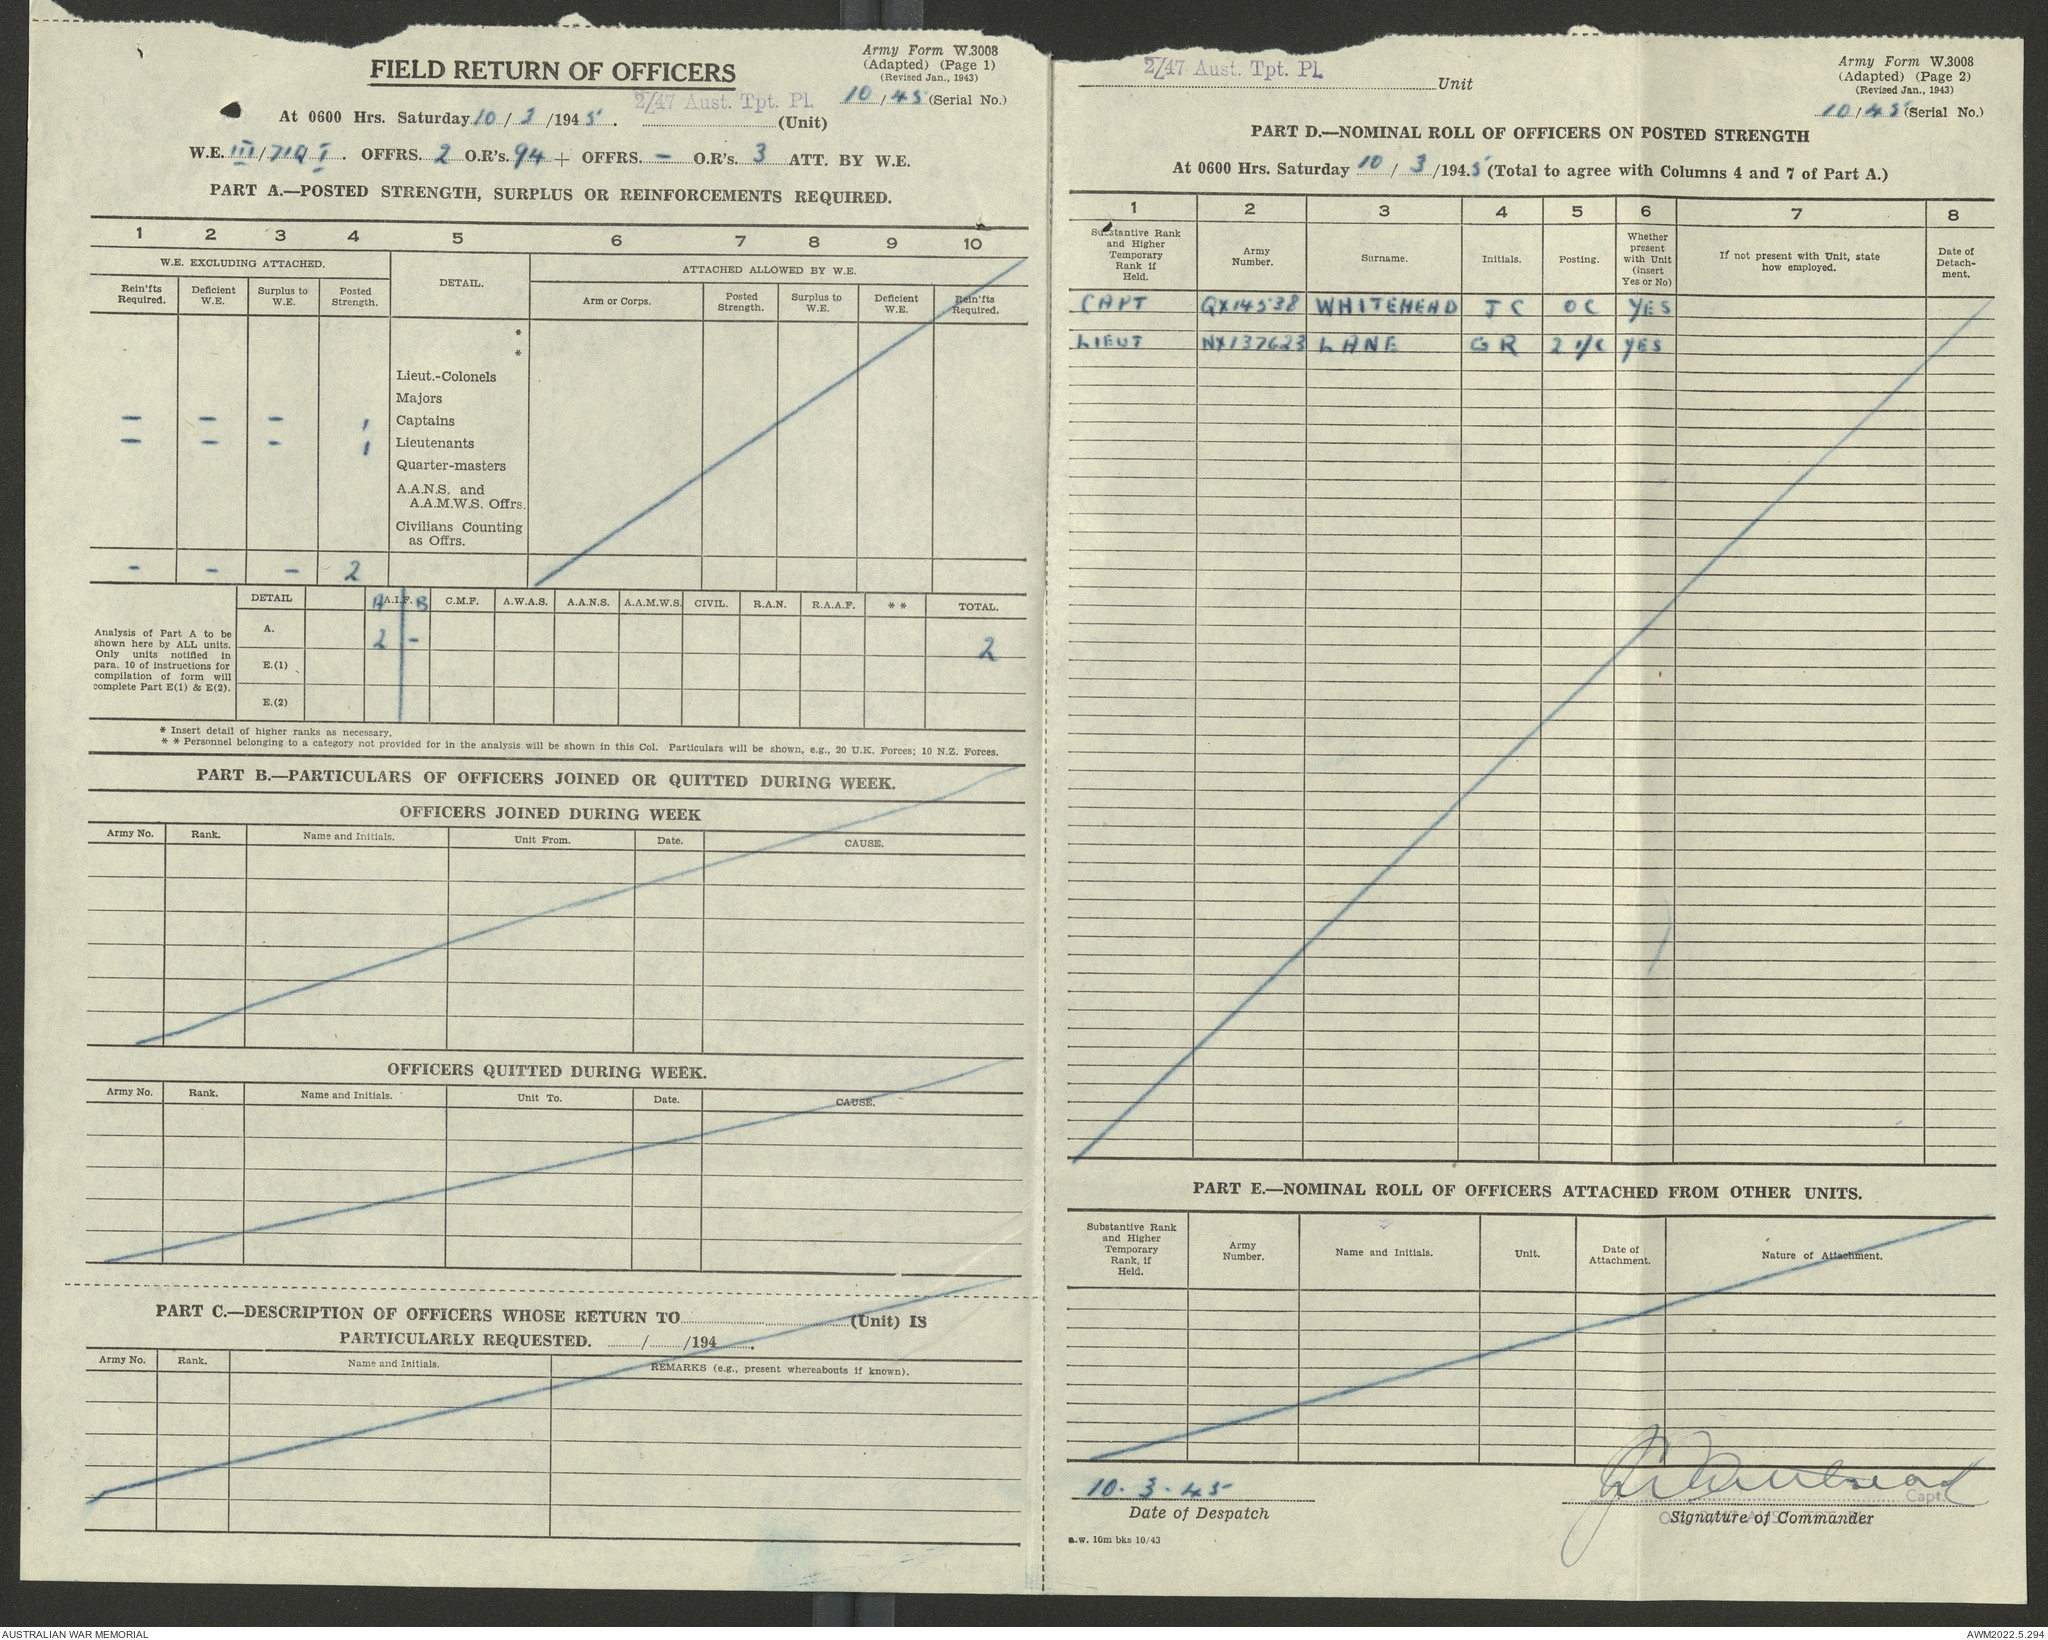 Army Form W.3008
(Adapted) (Page 1)
(Revised Jan., 1943)
FIELD RETURN OF OFFICERS
2/47 Aust. Tpt. Pl. 10/45 (Serial No.)
At 0600 Hrs. Saturday 10/3/1945. (Unit)
W.E. III/71Q I. OFFRS. 2 O.R's. 94 + OFFRS. - O.R's. 3 ATT. BY W.E.
PART A.—POSTED STRENGTH, SURPLUS OR REINFORCEMENTS REQUIRED.
1 2 3 4 5 6 7 8 9 10
W.E. EXCLUDING ATTACHED. DETAIL. ATTACHED ALLOWED BY W.E.
Rein'fts Required. Deficient W.E. Surplus to W.E. Posted Strength. Arm or Corps. Posted Strength. Surplus to W.E. Deficient W.E. Rein'fts Required.
*
*
Lieut.-Colonels
Majors
- - - 1 Captains
- - - 1 Lieutenants
Quarter-masters
A.A.N.S. and
A.A.M.W.S. Offrs.
Civilians Counting
as Offrs.
- - - 2
DETAIL A A.I.F. B C.M.F. A.W.A.S. A.A.N.S. A.A.M.W.S. CIVIL. R.A.N. R.A.A.F. * * TOTAL.
Analysis of Part A to be
shown here by ALL units.
Only units notified in
para. 10 of instructions for
compilation of form will
complete Part E(1) & E(2).
A. 2 - 2
E.(1)
E.(2)
* Insert detail of higher ranks as necessary.
* * Personnel belonging to a category not provided for in the analysis will be shown in this Col. Particulars will be shown, e.g., 20 U.K. Forces; 10 N.Z. Forces.
PART B.—PARTICULARS OF OFFICERS JOINED OR QUITTED DURING WEEK.
OFFICERS JOINED DURING WEEK
Army No. Rank. Name and Initials. Unit From. Date. CAUSE.
OFFICERS QUITTED DURING WEEK.
Army No. Rank. Name and Initials. Unit To. Date. CAUSE.
PART C.—DESCRIPTION OF OFFICERS WHOSE RETURN TO (Unit) IS
PARTICULARLY REQUESTED. / /194 .
Army No. Rank. Name and Initials. REMARKS (e.g., present whereabouts if known).
Army Form W.3008
(Adapted) (Page 2)
(Revised Jan., 1943)
2/47 Aust. Tpt. Pl. Unit
10/45 (Serial No.)
PART D.—NOMINAL ROLL OF OFFICERS ON POSTED STRENGTH
At 0600 Hrs. Saturday 10/3/194.5 (Total to agree with Columns 4 and 7 of Part A.)
1 2 3 4 5 6 7 8
Substantive Rank and Higher Temporary Rank if Held. Army Number. Surname. Initials. Posting. Whether present with Unit (insert Yes or No) If not present with Unit, state how employed. Date of Detach-ment.
CAPT QX14538 WHITEHEAD J C OC YES
LIEUT NX137623 LANE G R 2 i/c YES
PART E.—NOMINAL ROLL OF OFFICERS ATTACHED FROM OTHER UNITS.
Substantive Rank and Higher Temporary Rank, if Held. Army Number. Name and Initials. Unit. Date of Attachment. Nature of Attachment.
10.3.45 JC Whitehead Capt.
Date of Despatch Signature of Commander
a.w. 10m bks 10/43
AUSTRALIAN WAR MEMORIAL AWM2022.5.294